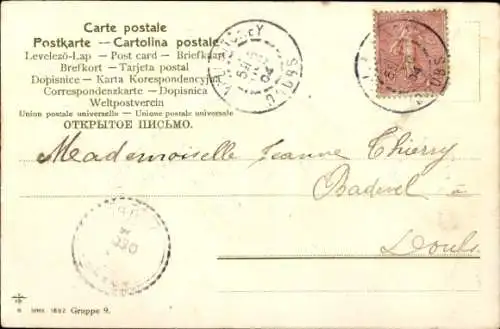 Carte postale
Postkarte — Cartolina postale
Levelező-Lap — Post card — Briefkaart
Brefkort — Tarjeta postal
Dopisnice — Karta Korespondencyjna
Correspondenzkarte — Dopisnica
Weltpostverein
Union postale universelle — Unione postale universale
ОТКРЫТОЕ ПИСЬМО.
Mademoiselle Jeanne Thierry
Badevel à
Doubs
Gruppe 9.